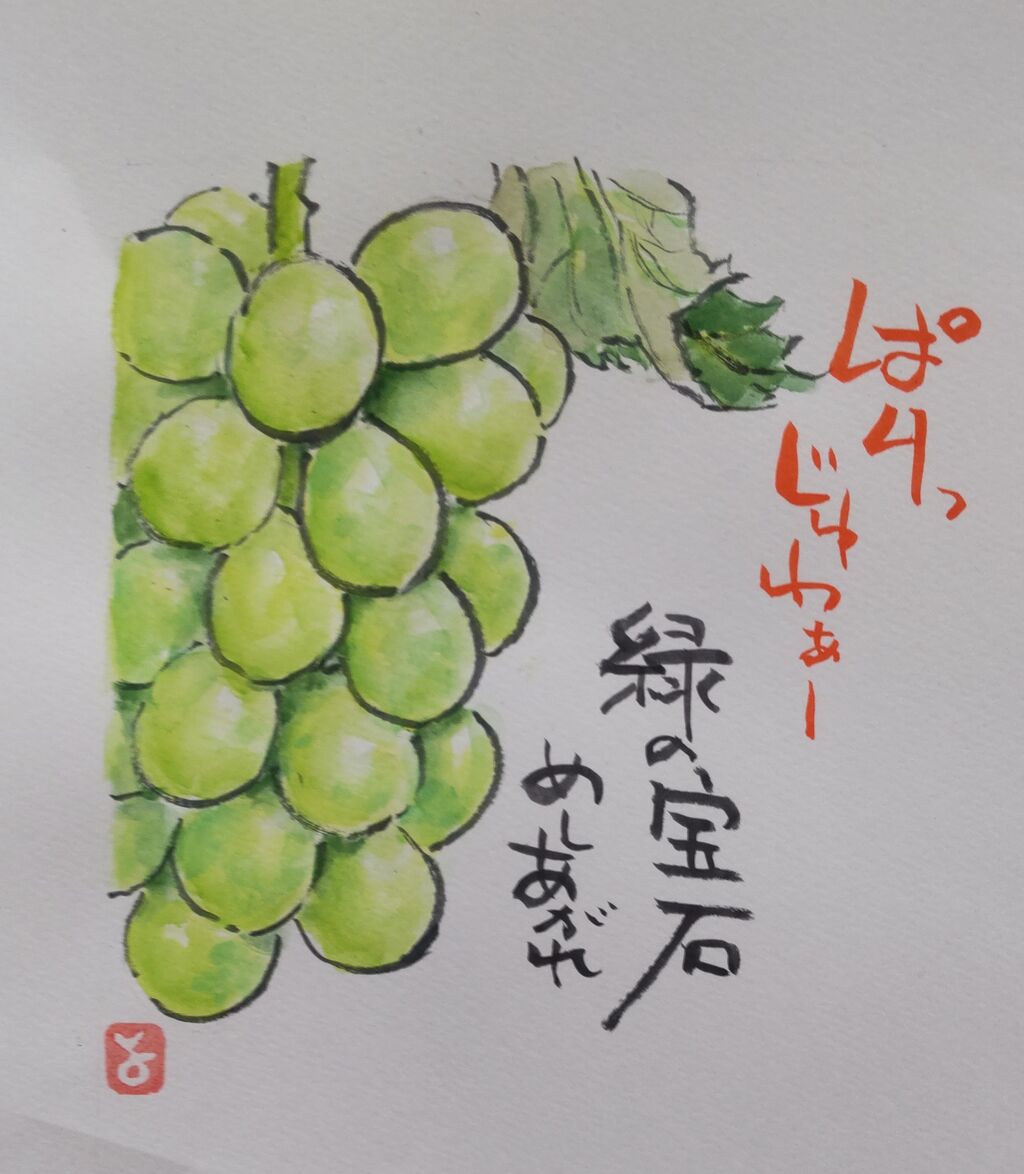 ぱりっ
じゅわぁー
緑の宝石
めしあがれ